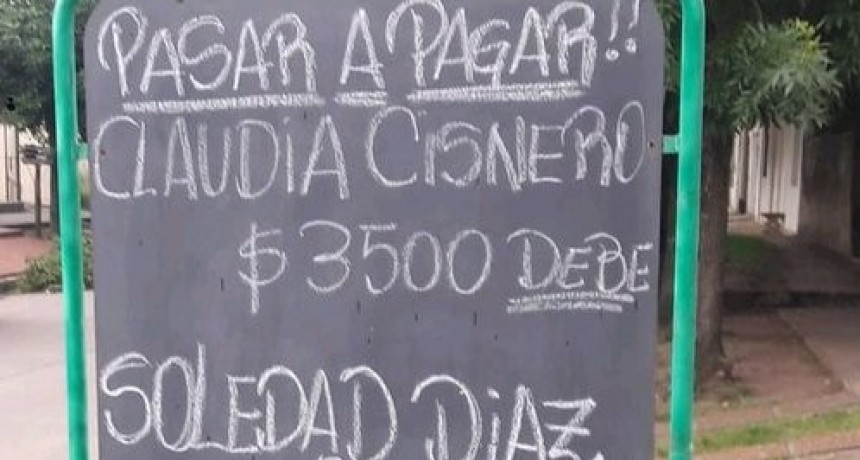 PASAR A PAGAR!!
CLAUDIA CISNERO
$3500 DEBE
SOLEDAD DIAZ